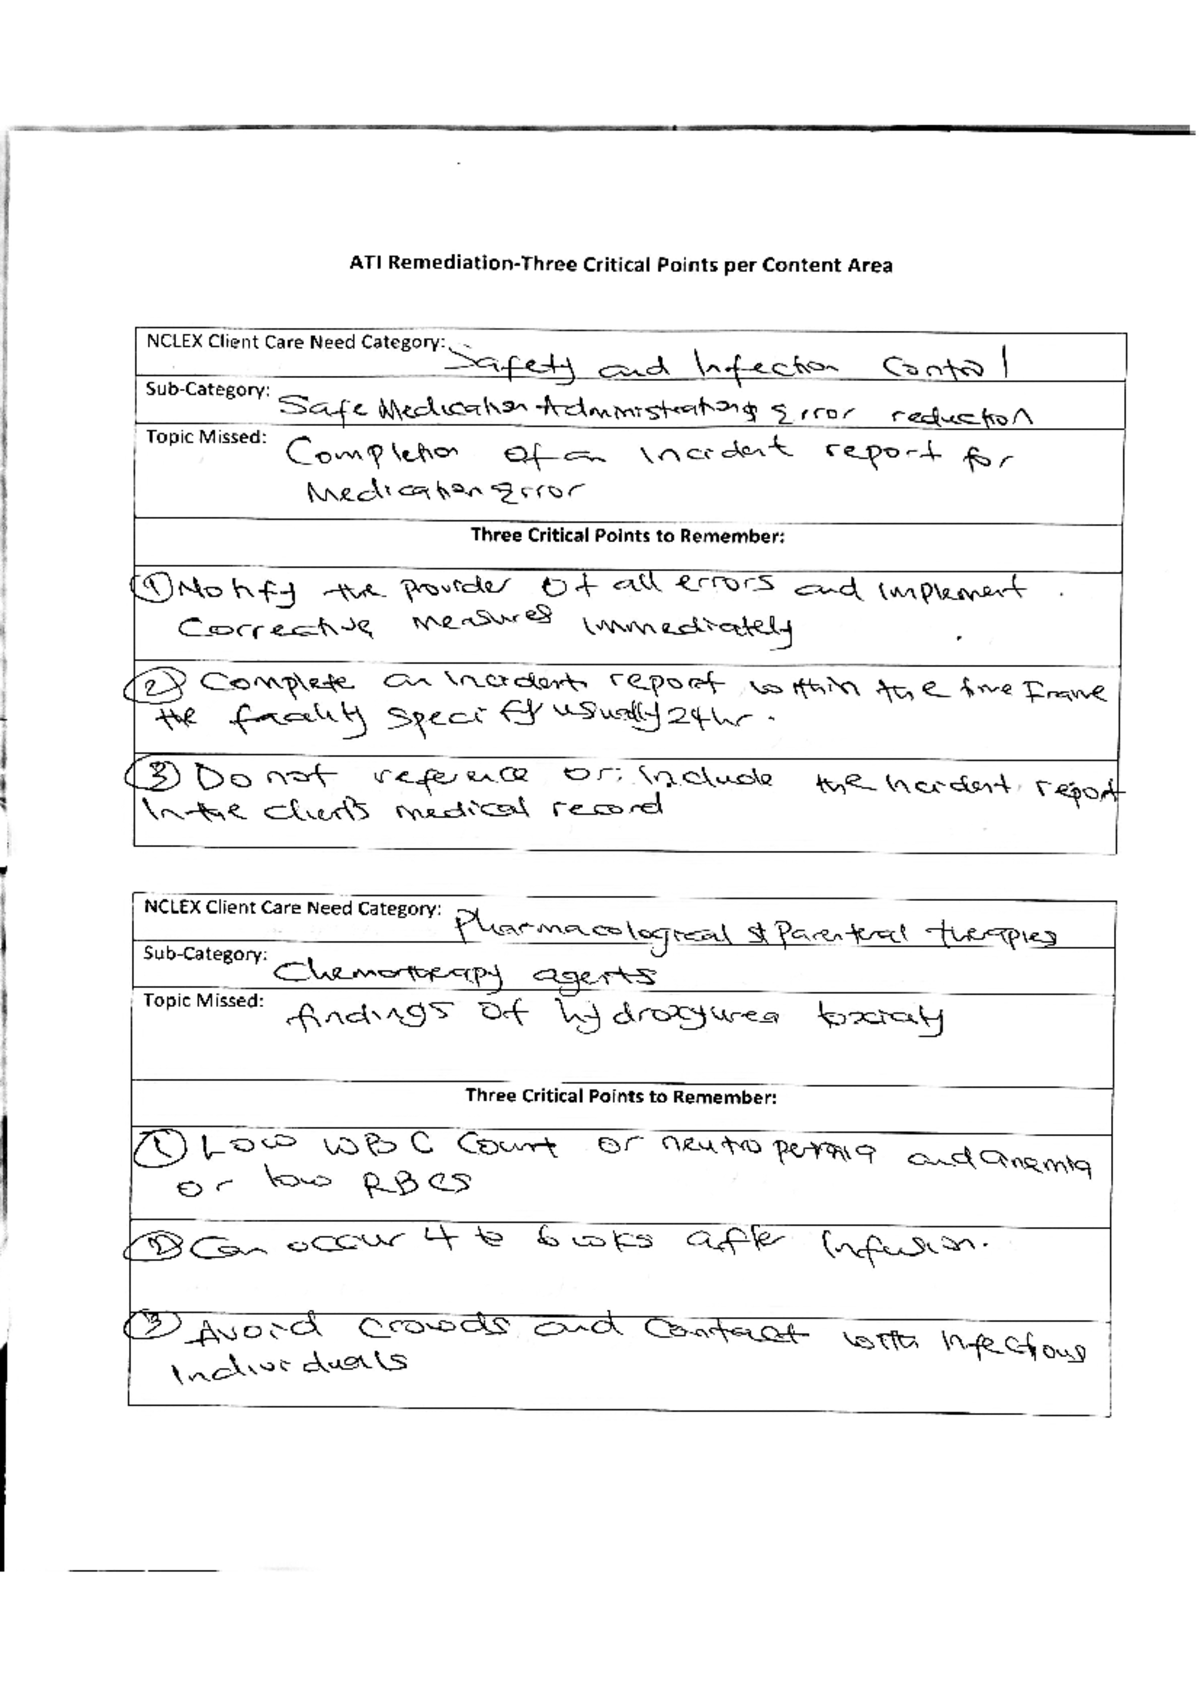 ATI Remediation-Three Critical Points per Content Area
NCLEX Client Care Need Category: Safety and Infection Control
Sub-Category: Safe Medication Administration & Error reduction
Topic Missed: Completion of an Incident report for
Medication Error
Three Critical Points to Remember:
① Notify the provider of all errors and implement
Corrective measures immediately
② Complete an incident report within the time Frame
the facility specify usually 24hr.
③ Do not reference or include the incident report
in the client's medical record
NCLEX Client Care Need Category: Pharmacological & Parenteral therapies
Sub-Category: Chemotherapy agents
Topic Missed: findings of hydroxyurea toxicity
Three Critical Points to Remember:
① Low WBC Count or neutropenia and anemia
or low RBCs
② Can occur 4 to 6 wks after infusion.
③ Avoid crowds and contact with infectious
individuals